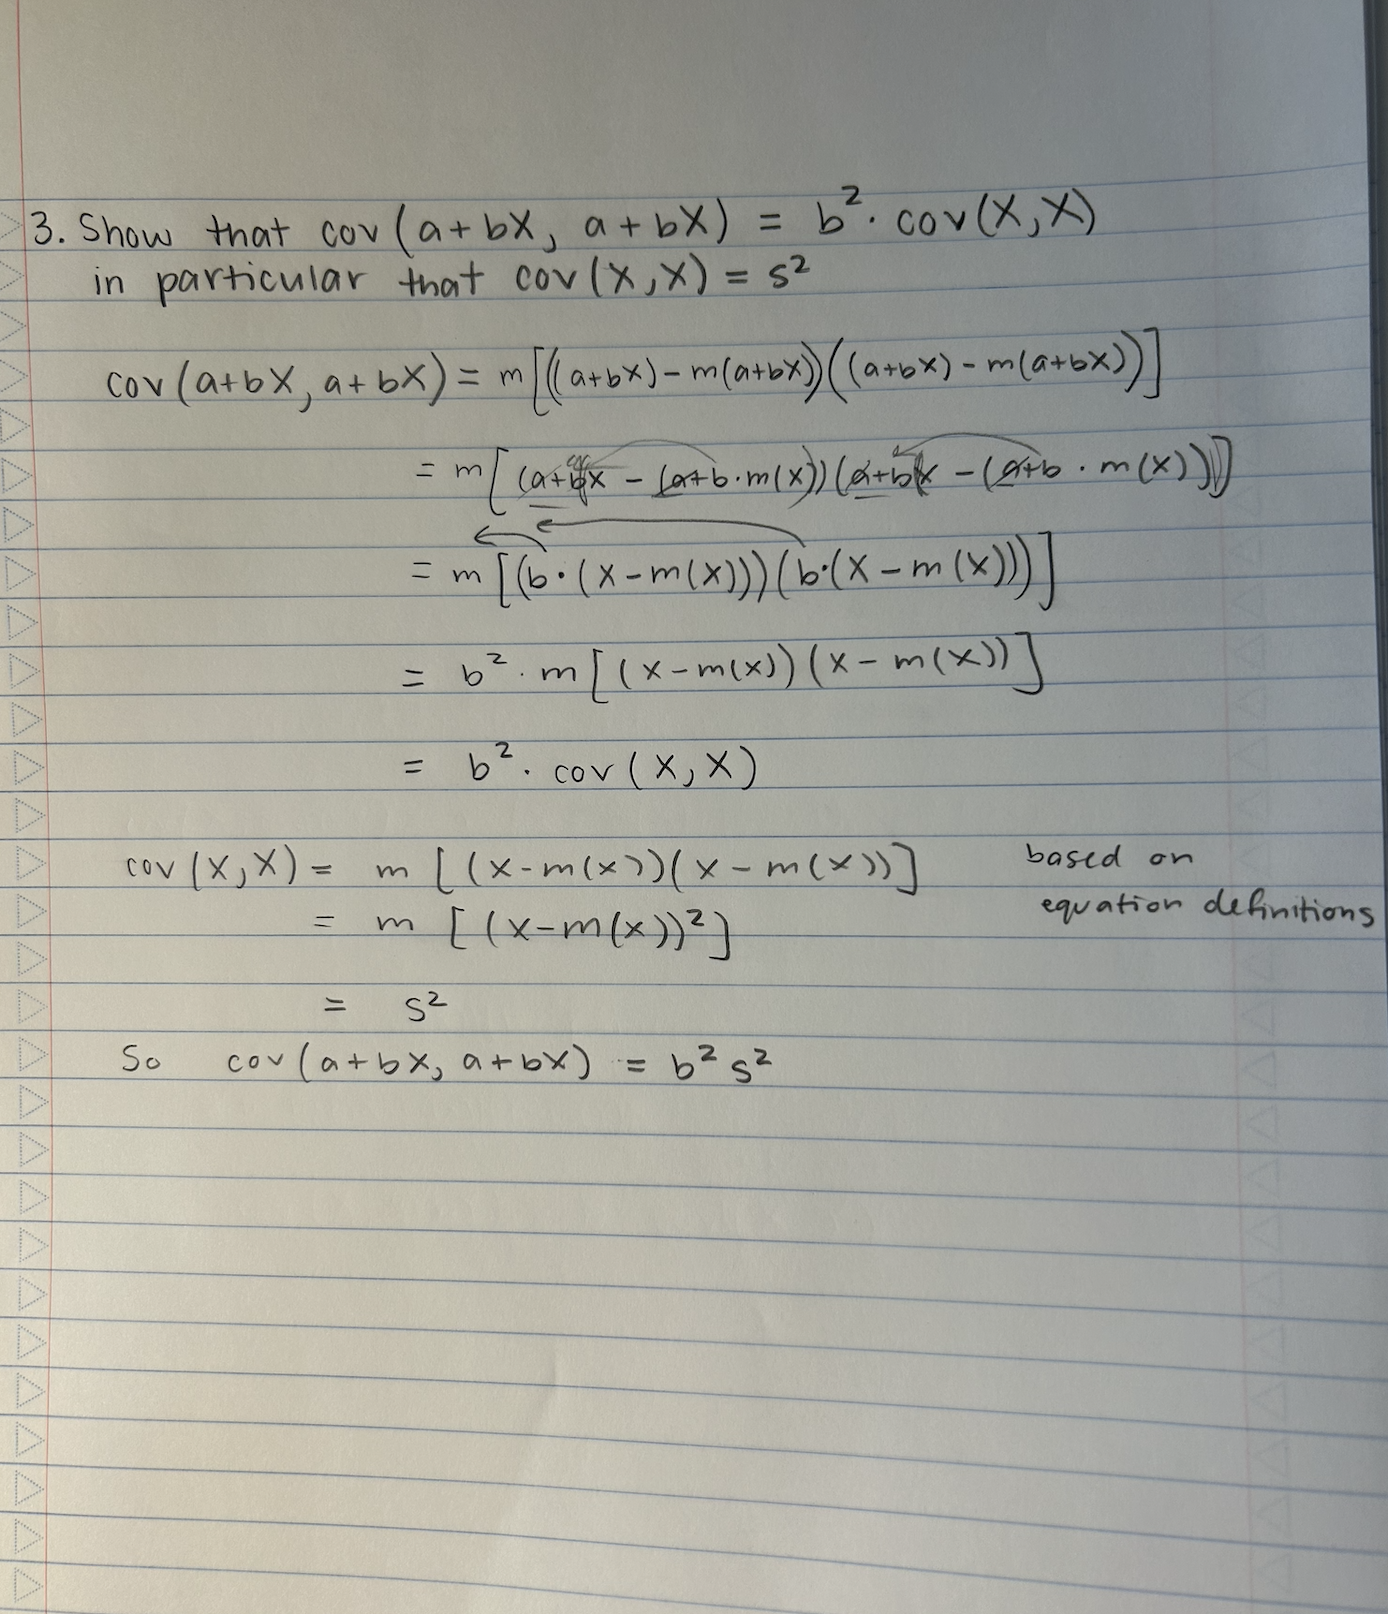 3. Show that cov(a+bX, a+bX) = b². cov(X,X)
in particular that cov(X,X) = s²
cov(a+bX, a+bX) = m[((a+bX)-m(a+bX))((a+bX)-m(a+bX))]
= m[(a+bX - (a+b·m(X))(a+bX - (a+b·m(X))]
= m[(b·(X-m(X)))(b·(X-m(X)))]
= b²·m[(X-m(X))(X-m(X))]
= b². cov(X,X)
cov(X,X) = m[(X-m(X))(X-m(X))] based on
equation definitions
= m[(X-m(X))²]
= s²
So cov(a+bX, a+bX) = b²s²